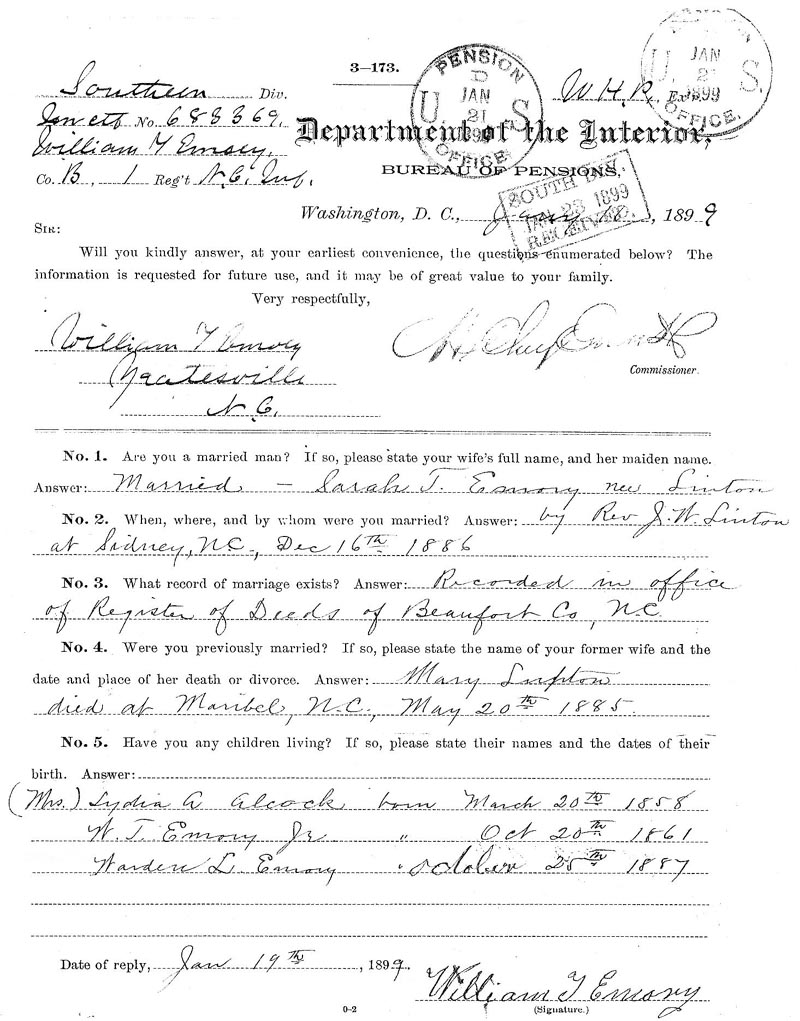 3—173.
Southern Div.
W.H.R. Ex'r.
No. 683369.
William T Emory,
Co. B, 1 Reg't N.C. Inf.
PENSION
JAN
21
U S
OFFICE.
JAN
2
1899
U. S.
OFFICE.
Department of the Interior,
BUREAU OF PENSIONS,
SOUTH DIV.
JAN 23 1899
RECEIVED.
Washington, D. C., 1899
SIR:
Will you kindly answer, at your earliest convenience, the questions enumerated below? The
information is requested for future use, and it may be of great value to your family.
Very respectfully,
William T Emory
Yeatesville
N.C.
Commissioner.
No. 1. Are you a married man? If so, please state your wife's full name, and her maiden name.
Answer: Married – Sarah T. Emory nee Linton
No. 2. When, where, and by whom were you married? Answer: by Rev J. W. Linton
at Sidney, N.C., Dec 16th 1886
No. 3. What record of marriage exists? Answer: Recorded in office
of Register of Deeds of Beaufort Co, N.C.
No. 4. Were you previously married? If so, please state the name of your former wife and the
date and place of her death or divorce. Answer: Mary Lupton
died at Maribel, N.C., May 20th 1885.
No. 5. Have you any children living? If so, please state their names and the dates of their
birth. Answer:
(Mrs.) Lydia A Alcock born March 20th 1858
W. T. Emory Jr " Oct 20th 1861
Warden L. Emory " October 25th 1887
Date of reply, Jan 19th, 1899.
William T Emory
(Signature.)
0-2